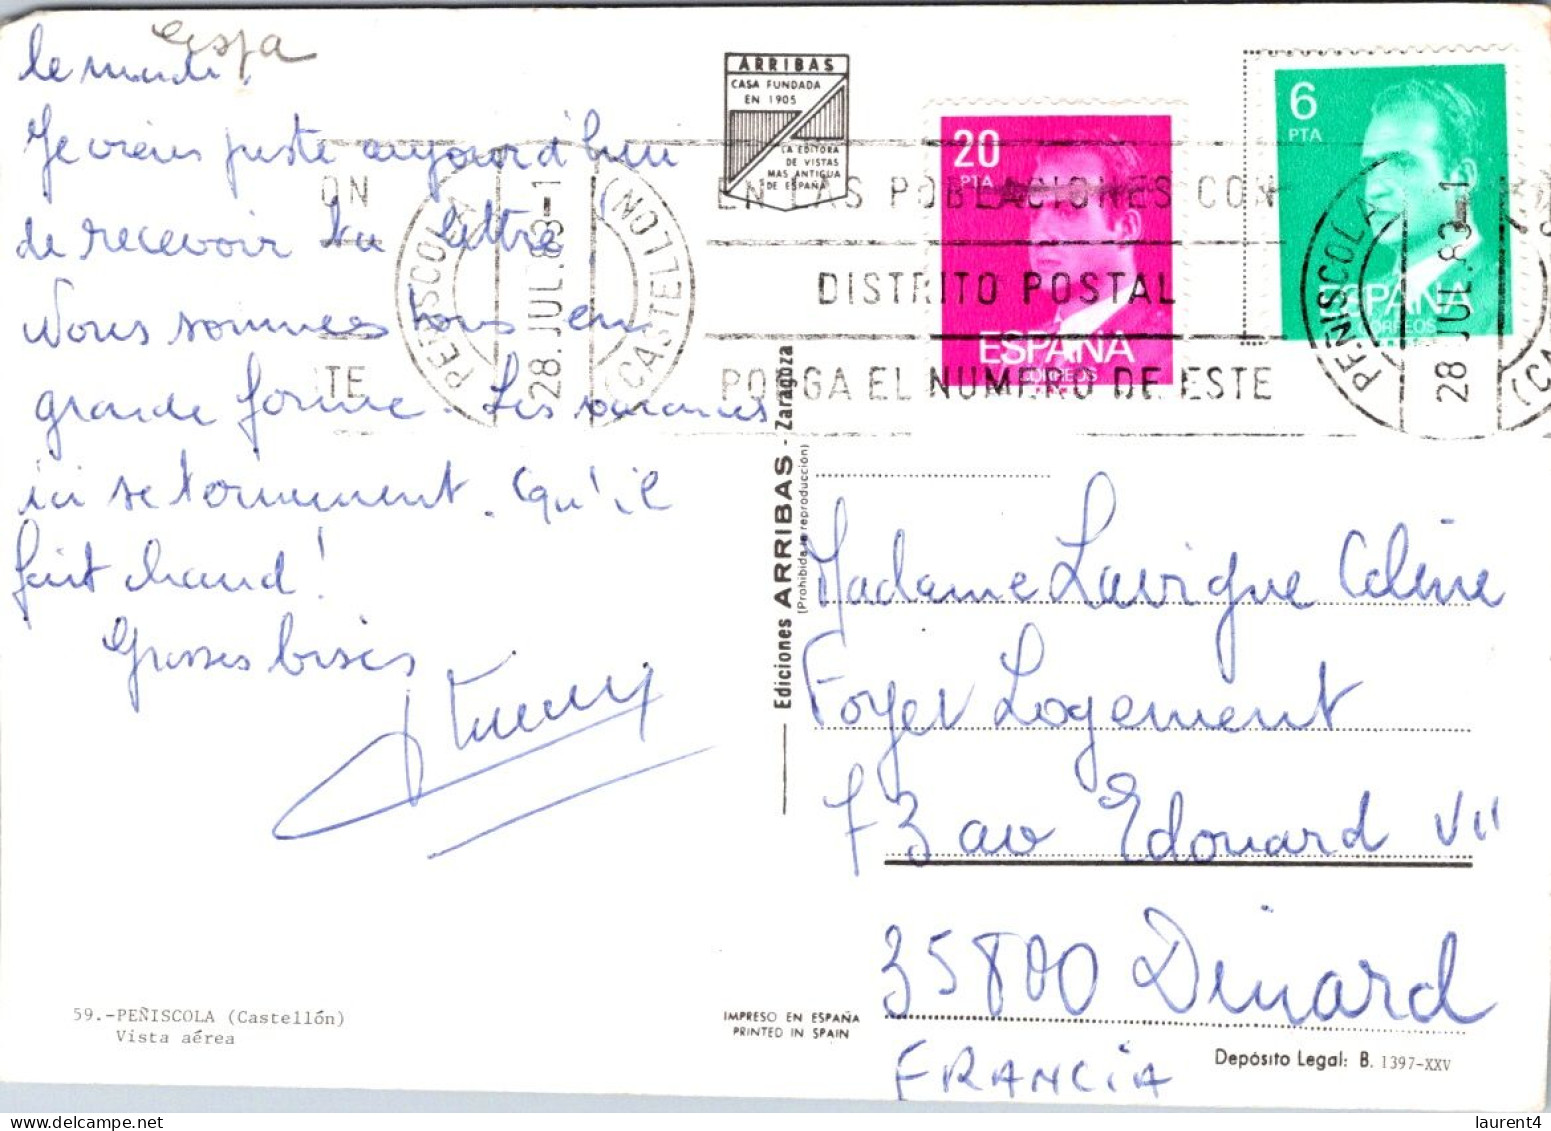 Espa
le mardi.
Je viens juste aujourd'hui
de recevoir ta lettre
Nous sommes tous en
grande forme. Les vacances
ici se terminent. Qu'il
fait chaud!
Grosses bises
59.-PEÑISCOLA (Castellón)
Vista aérea
ARRIBAS
CASA FUNDADA
EN 1905
LA EDITORA
DE VISTAS
MAS ANTIGUA
DE ESPAÑA
20
PTA
ESPAÑA
CORREOS
6
PTA
ESPAÑA
CORREOS
PEÑISCOLA
28.JUL.83-1
(CASTELLON)
EN LAS POBLACIONES CON
DISTRITO POSTAL
PONGA EL NUMERO DE ESTE
PEÑISCOLA
28 JUL.83-1
(CA
ON
TE
Ediciones ARRIBAS - Zaragoza
(Prohibida la reproducción)
Madame Lavigne Céline
Foyer Logement
73 av Edouard VII
35800 Dinard
FRANCIA
IMPRESO EN ESPAÑA
PRINTED IN SPAIN
Depósito Legal: B. 1397-XXV
laurent4